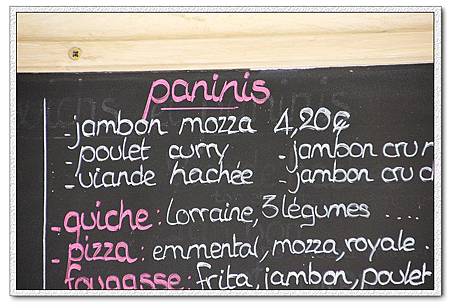 paninis
- jambon mozza 4,20€
- poulet curry - jambon cru
- viande hachée - jambon cru
- quiche : lorraine, 3 légumes ....
- pizza : emmental, mozza, royale .
fougasse : frita, jambon, poulet